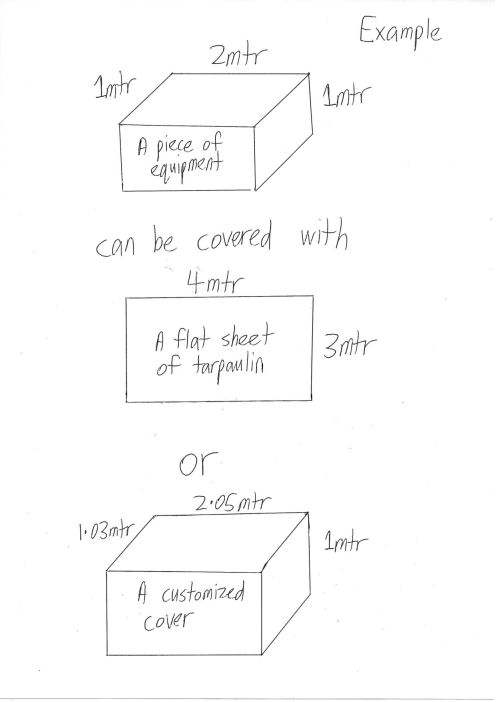 Example
2mtr
1mtr
1mtr
A piece of
equipment
can be covered with
4mtr
A flat sheet
of tarpaulin
3mtr
or
2.05mtr
1.03mtr
1mtr
A customized
cover